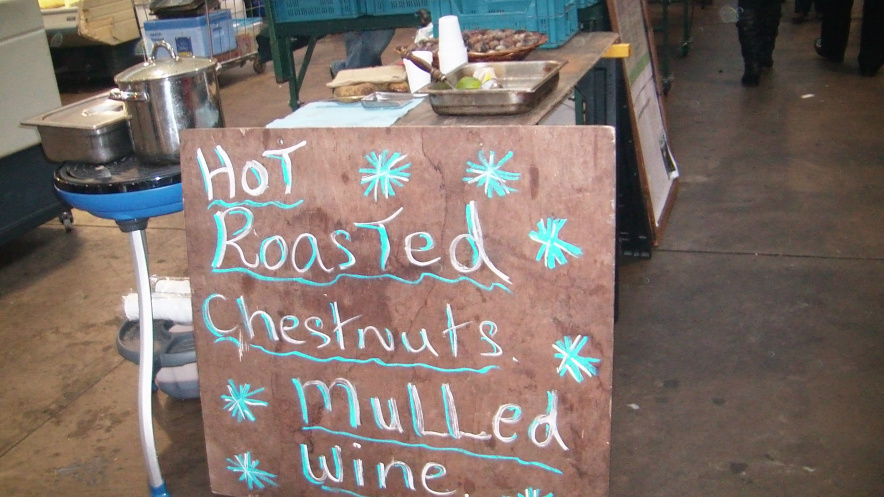 HOT
Roasted
Chestnuts.
Mulled
Wine.